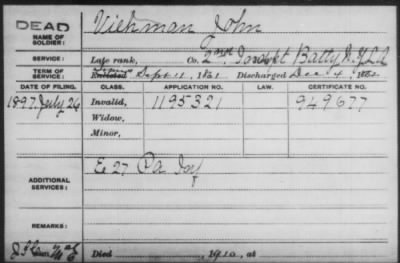 DEAD
NAME OF SOLDIER: Viehman John
SERVICE: Late rank, Co. 2nd Indpt Batty N.Y.L.A
TERM OF SERVICE: Enlisted Sept 11, 1861 Discharged Dec 4, 1862
DATE OF FILING. CLASS. APPLICATION NO. LAW. CERTIFICATE NO.
1897 July 26 Invalid, 1195321 949677
Widow,
Minor,
ADDITIONAL SERVICES: E 27 Pa Inf
REMARKS:
Died 1910, at